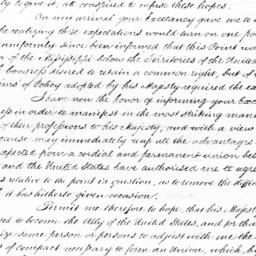 ly to give it, all conspired to infuse these hopes.
On my arrival your Excellency gave me to
the realizing these expectations would turn on one po
uniformly since been informed that this Point wa
on of the Missisippi below the Territories of the United
d Congress desired to retain a common right, but if
ims of Policy adopted by his Majesty required the ex
I have now the honor of informing your Exce
ess in order to manifest in the most striking mann
of their professions to his Majesty, and with a view
cause may immediately reap all the advantages
expected from a cordial and permanent union bet
and the United States have authorised me to agree
s relative to the point in question, as to remove the diffic
it has hitherto given occasion.
Permit me therefore to hope, that his Majest
ned to become the ally of the United States, and for tha
ize some person or persons to adjust with me the
of compact necessary to form an Union, which, b